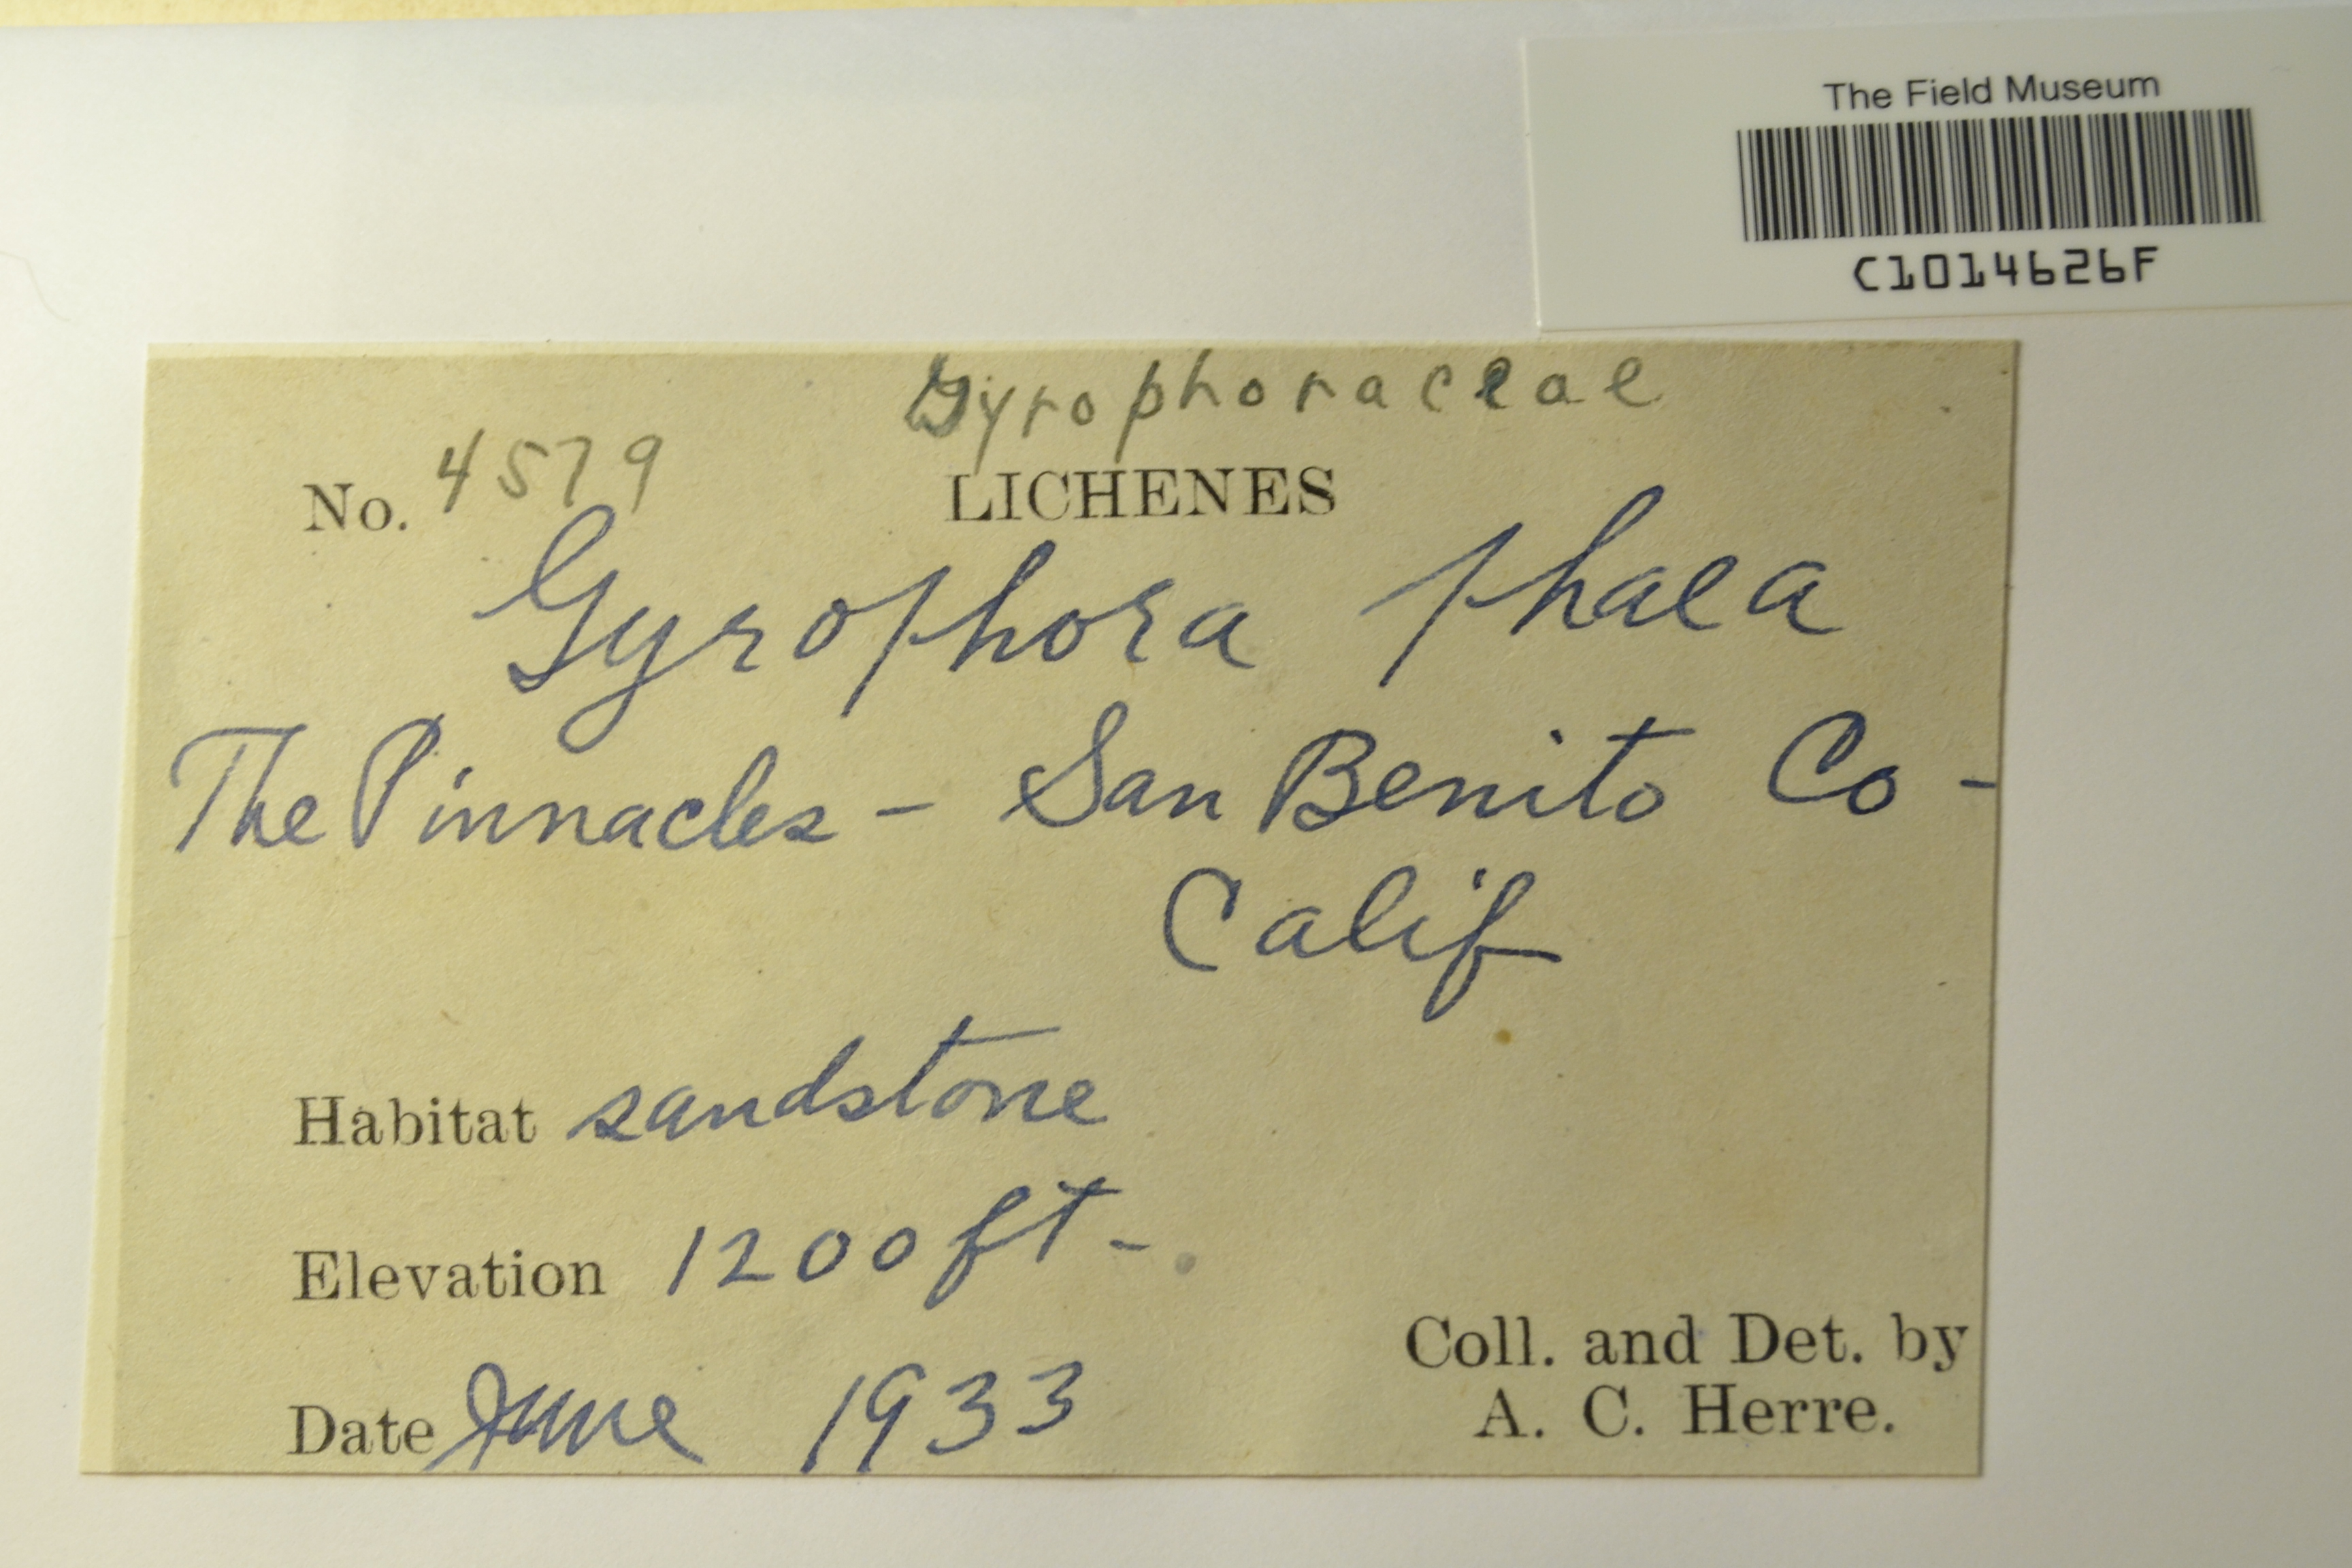 The Field Museum
C1014626F
Gyrophoraceae
No. 4579
LICHENES
Gyrophora phaea
The Pinnacles - San Benito Co -
Calif
Habitat sandstone
Elevation 1200 ft -
Date June 1933
Coll. and Det. by
A. C. Herre.